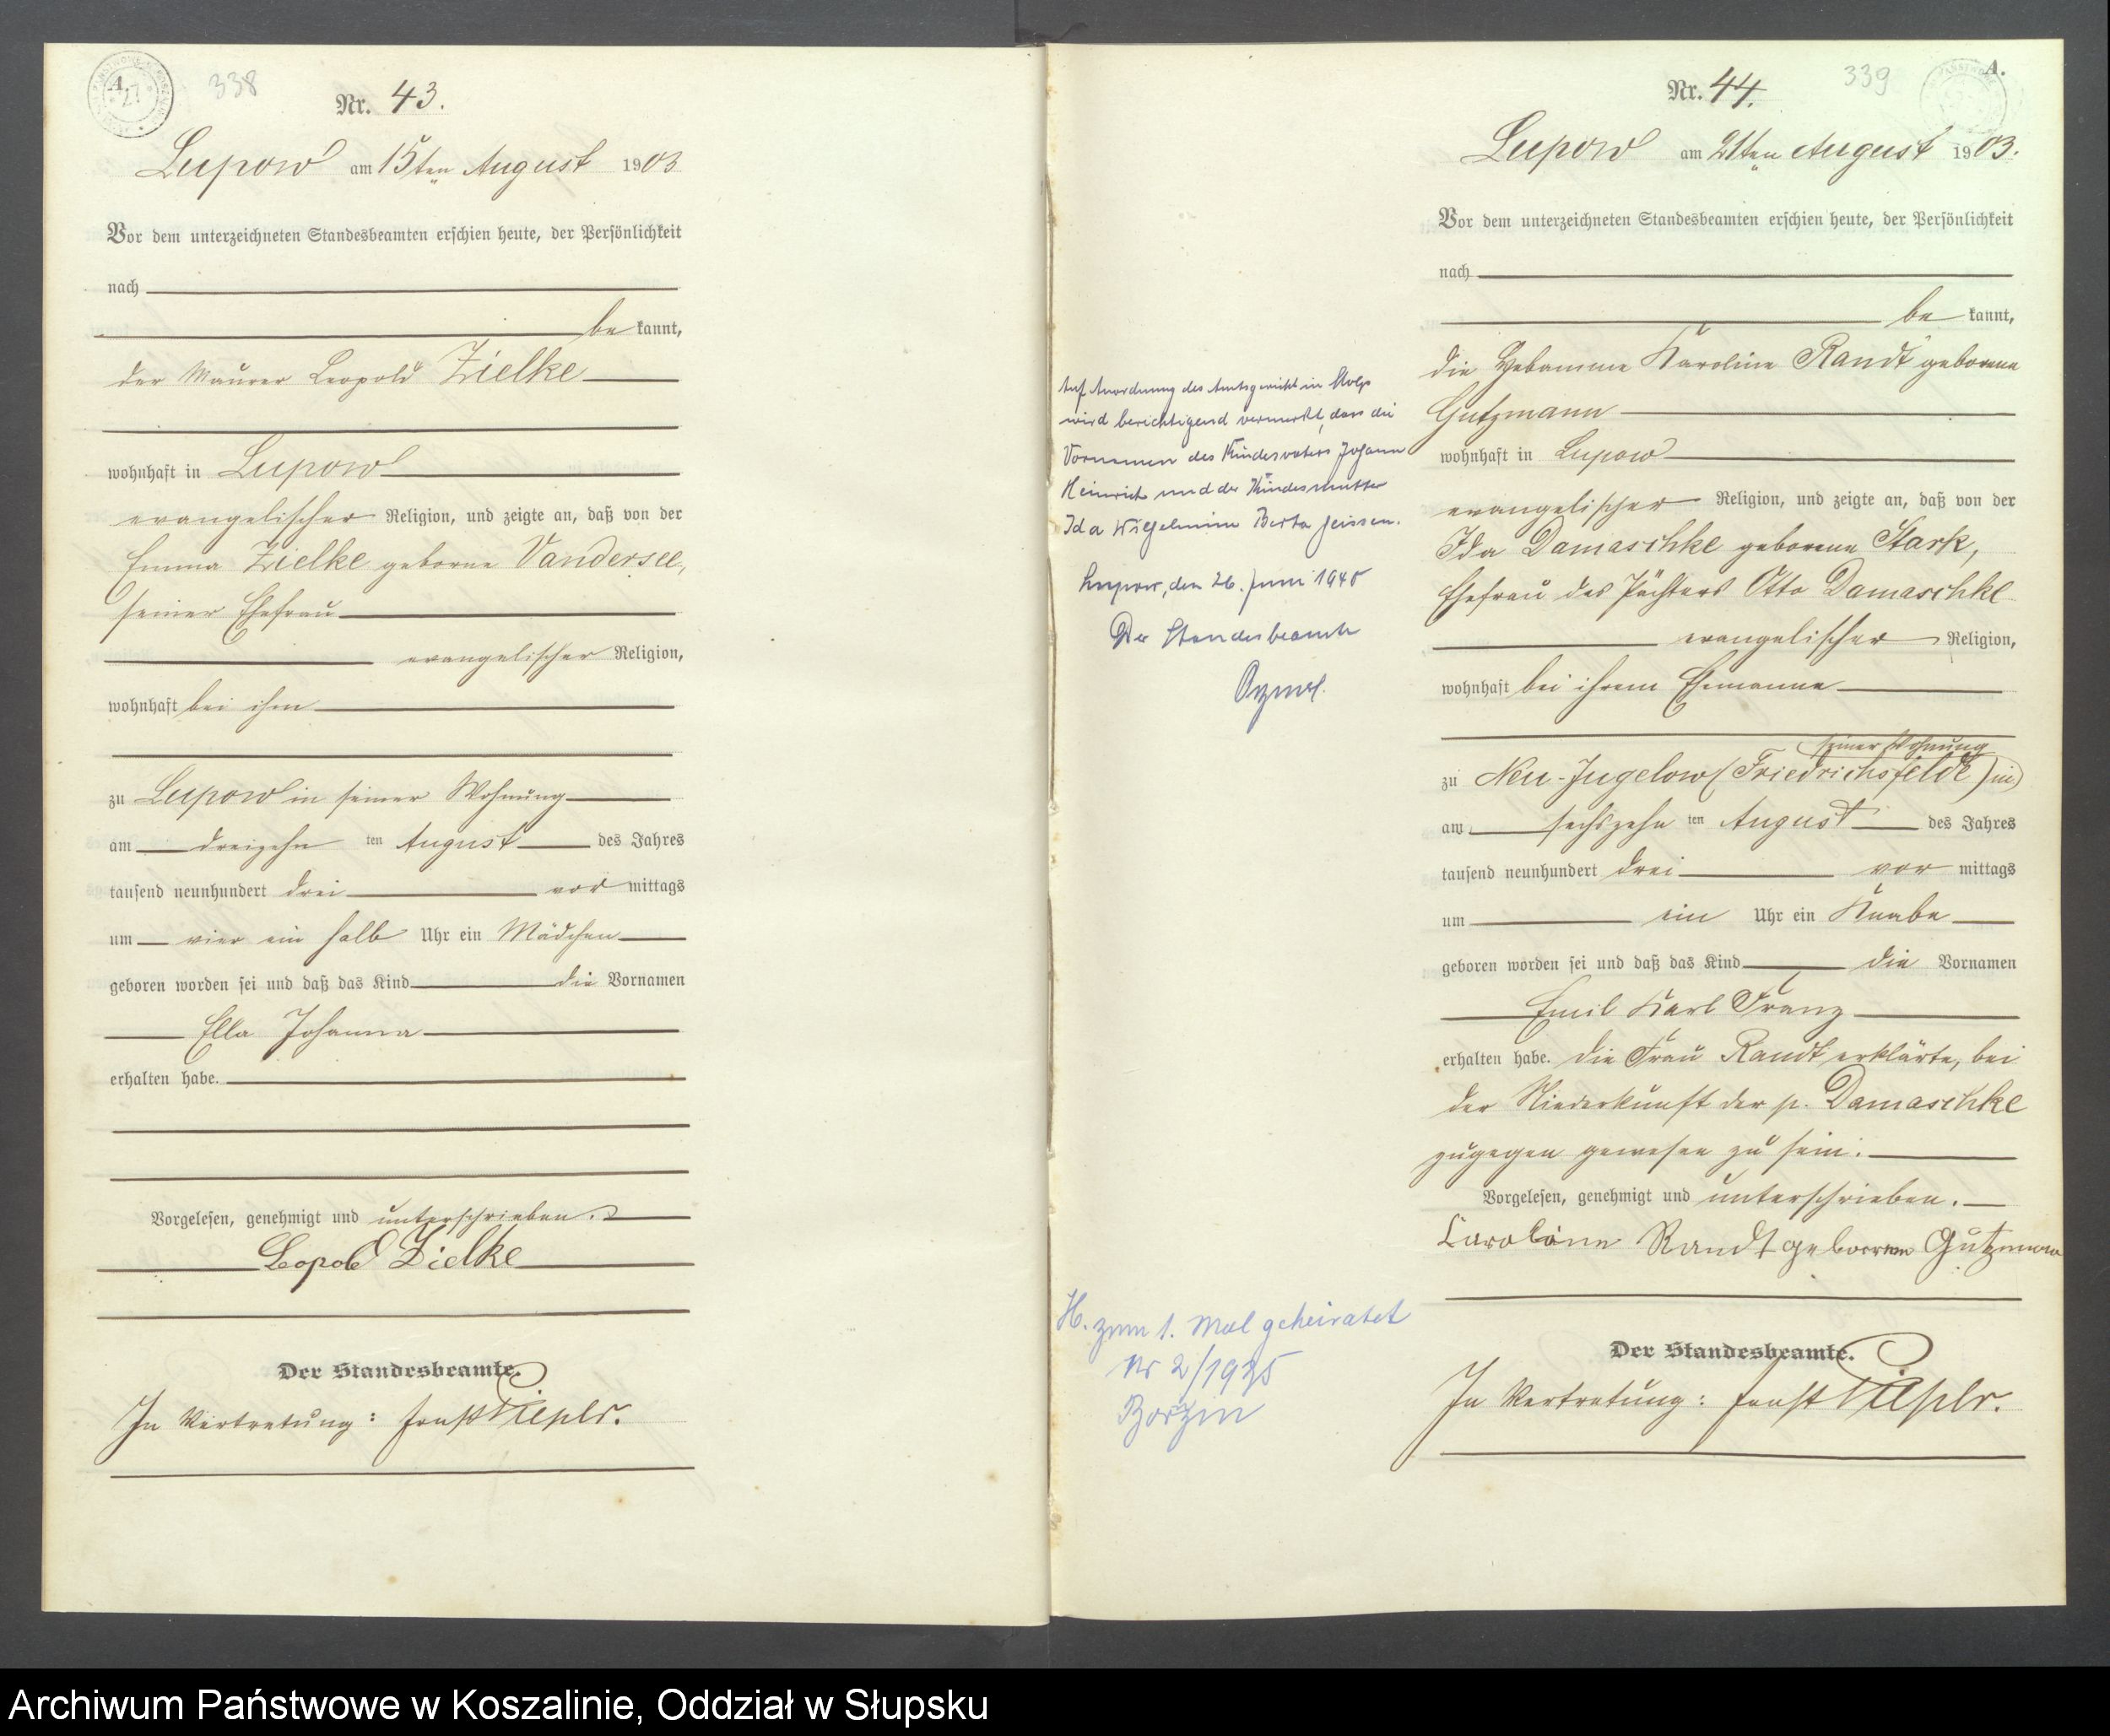 A.
27
338
Nr. 43.
Lupow am 15ten August 1903
Vor dem unterzeichneten Standesbeamten erschien heute, der Persönlichkeit
nach
be kannt,
der Maurer Leopold Zielke
wohnhaft in Lupow
evangelischer Religion, und zeigte an, daß von der
Emma Zielke geborne Vandersee,
seiner Ehefrau
evangelischer Religion,
wohnhaft bei ihm
zu Lupow in seiner Wohnung
am dreizehn ten August des Jahres
tausend neunhundert drei vor mittags
um vier ein halb Uhr ein Mädchen
geboren worden sei und daß das Kind die Vornamen
Ella Johanna
erhalten habe.
Vorgelesen, genehmigt und unterschrieben.
Leopold Zielke
Der Standesbeamte.
In Vertretung: Ernst
Auf Anordnung des Amtsgerichts in Stolp
wird berichtigend vermerkt, dass die
Vornamen des Kindesvaters Johann
Heinrich und der Kindesmutter
Ida Wilhelmine Berta heissen.
Lupow, den 26. Juni 1940
Der Standesbeamte
H. zum 1. Mal geheiratet
Nr 2/1935
339
A.
Nr. 44.
Lupow am 21ten August 1903.
Vor dem unterzeichneten Standesbeamten erschien heute, der Persönlichkeit
nach
be kannt,
die Hebamme Karoline Randt geborene
Gutzmann
wohnhaft in Lupow
evangelischer Religion, und zeigte an, daß von der
Ida Damaschke geborene Stark,
Ehefrau des Pächters Otto Damaschke
evangelischer Religion,
wohnhaft bei ihrem Ehemanne
seiner Wohnung
zu Neu-Jugelow (Friedrichsfelde) in
am sechszehn ten August des Jahres
tausend neunhundert drei vor mittags
um ein Uhr ein Knabe
geboren worden sei und daß das Kind die Vornamen
Emil Karl Franz
erhalten habe. Die Frau Randt erklärte, bei
der Niederkunft der p. Damaschke
zugegen gewesen zu sein.
Vorgelesen, genehmigt und unterschrieben.
Karoline Randt geborene Gutzmann
Der Standesbeamte.
In Vertretung: Ernst
Archiwum Państwowe w Koszalinie, Oddział w Słupsku